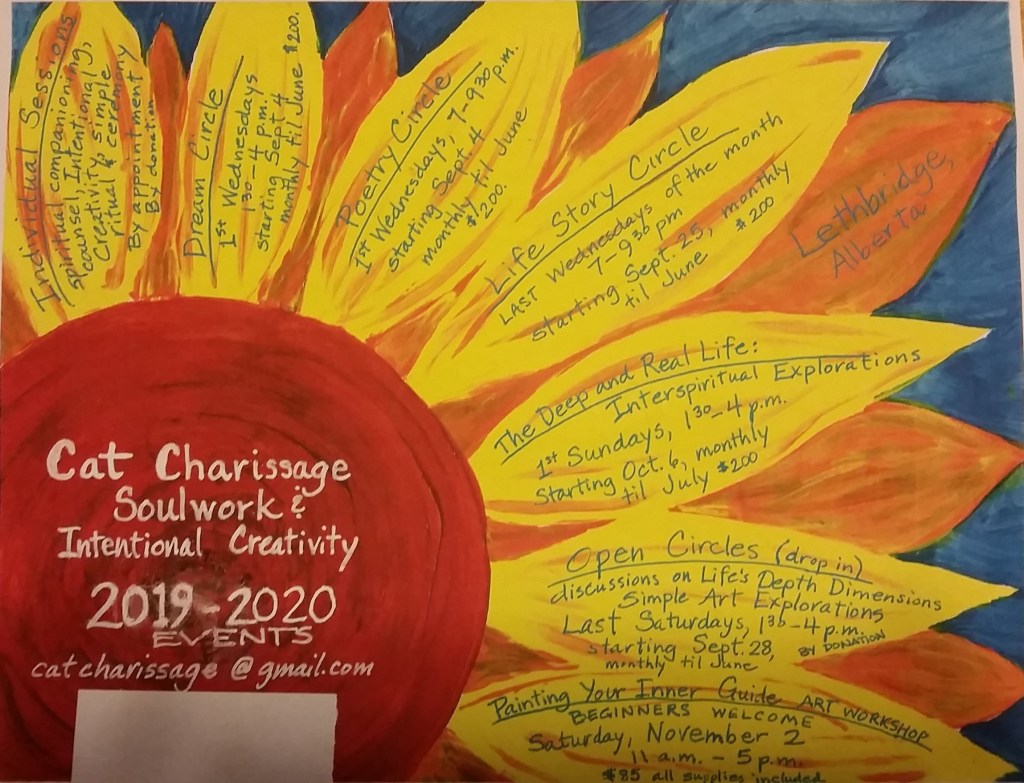 Individual Sessions
spiritual companioning,
counsel, Intentional
Creativity, simple
ritual & ceremony
By appointment
By donation
Dream Circle
1st Wednesdays
1:30-4 p.m.
starting Sept. 4
monthly til June $200.
Poetry Circle
1st Wednesdays, 7-9:30 p.m.
starting Sept. 4
monthly til June
$200.
Life Story Circle
LAST Wednesdays of the month
7-9:30 pm
starting Sept. 25, monthly
til June $200
Lethbridge,
Alberta
The Deep and Real Life:
Interspiritual Explorations
1st Sundays, 1:30-4 p.m.
Starting Oct. 6, monthly
til July $200
Open Circles (drop in)
discussions on Life's Depth Dimensions
Simple Art Explorations
Last Saturdays, 1:30-4 p.m.
starting Sept. 28, BY DONATION
monthly til June
Painting Your Inner Guide ART WORKSHOP
BEGINNERS WELCOME
Saturday, November 2
11 a.m. - 5 p.m.
$85 all supplies included
Cat Charissage
Soulwork &
Intentional Creativity
2019-2020
EVENTS
catcharissage@gmail.com